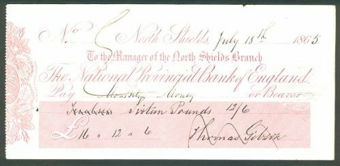 No North Shields July 18th 1865
To the Manager of the North Shields Branch
The National Provincial Bank of England
Pay or Bearer
Sixteen Pounds 12/6
£16 " 12 " 6 Thomas Gibson